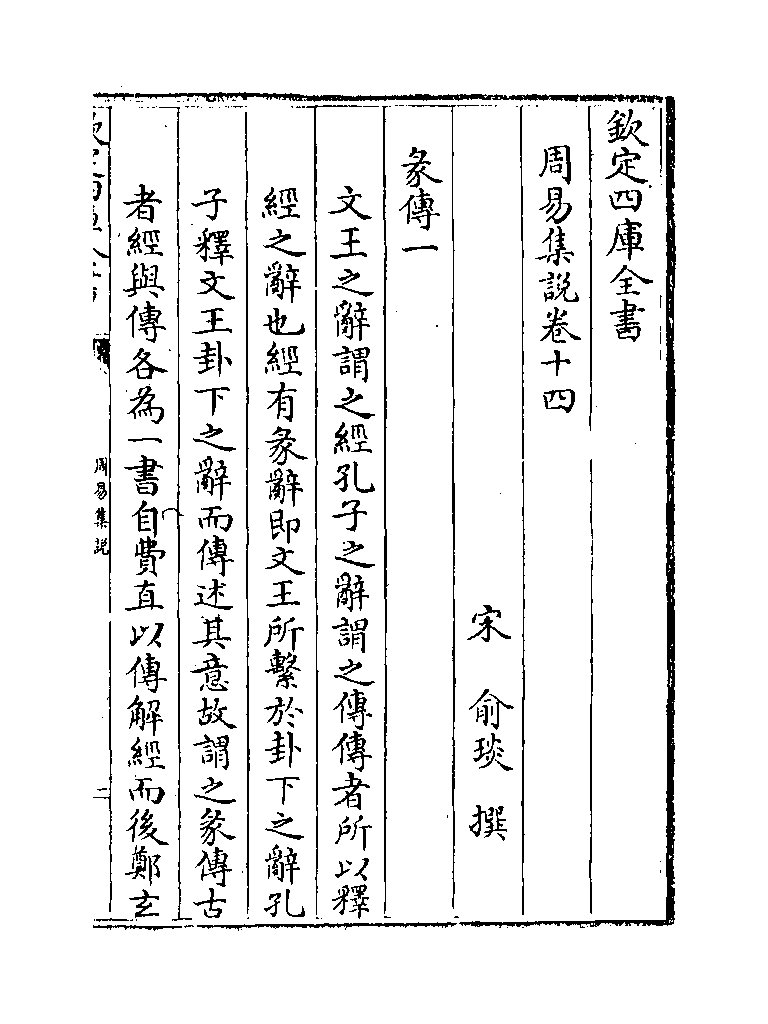 欽定四庫全書
周易集說卷十四
宋 俞琰 撰
彖傳一
文王之辭謂之經孔子之辭謂之傳傳者所以釋
經之辭也經有彖辭即文王所繫於卦下之辭孔
子釋文王卦下之辭而傳述其意故謂之彖傳古
者經與傳各為一書自費直以傳解經而後鄭玄
周易集說